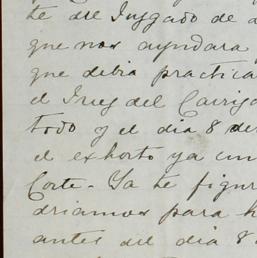 te del Juzgado de
que nos ayudara
que debia practica
el Juez del
todo y el dia 8 de
el exhorto ya
Corte. Ya te figur
driamos para h
antes del dia 8